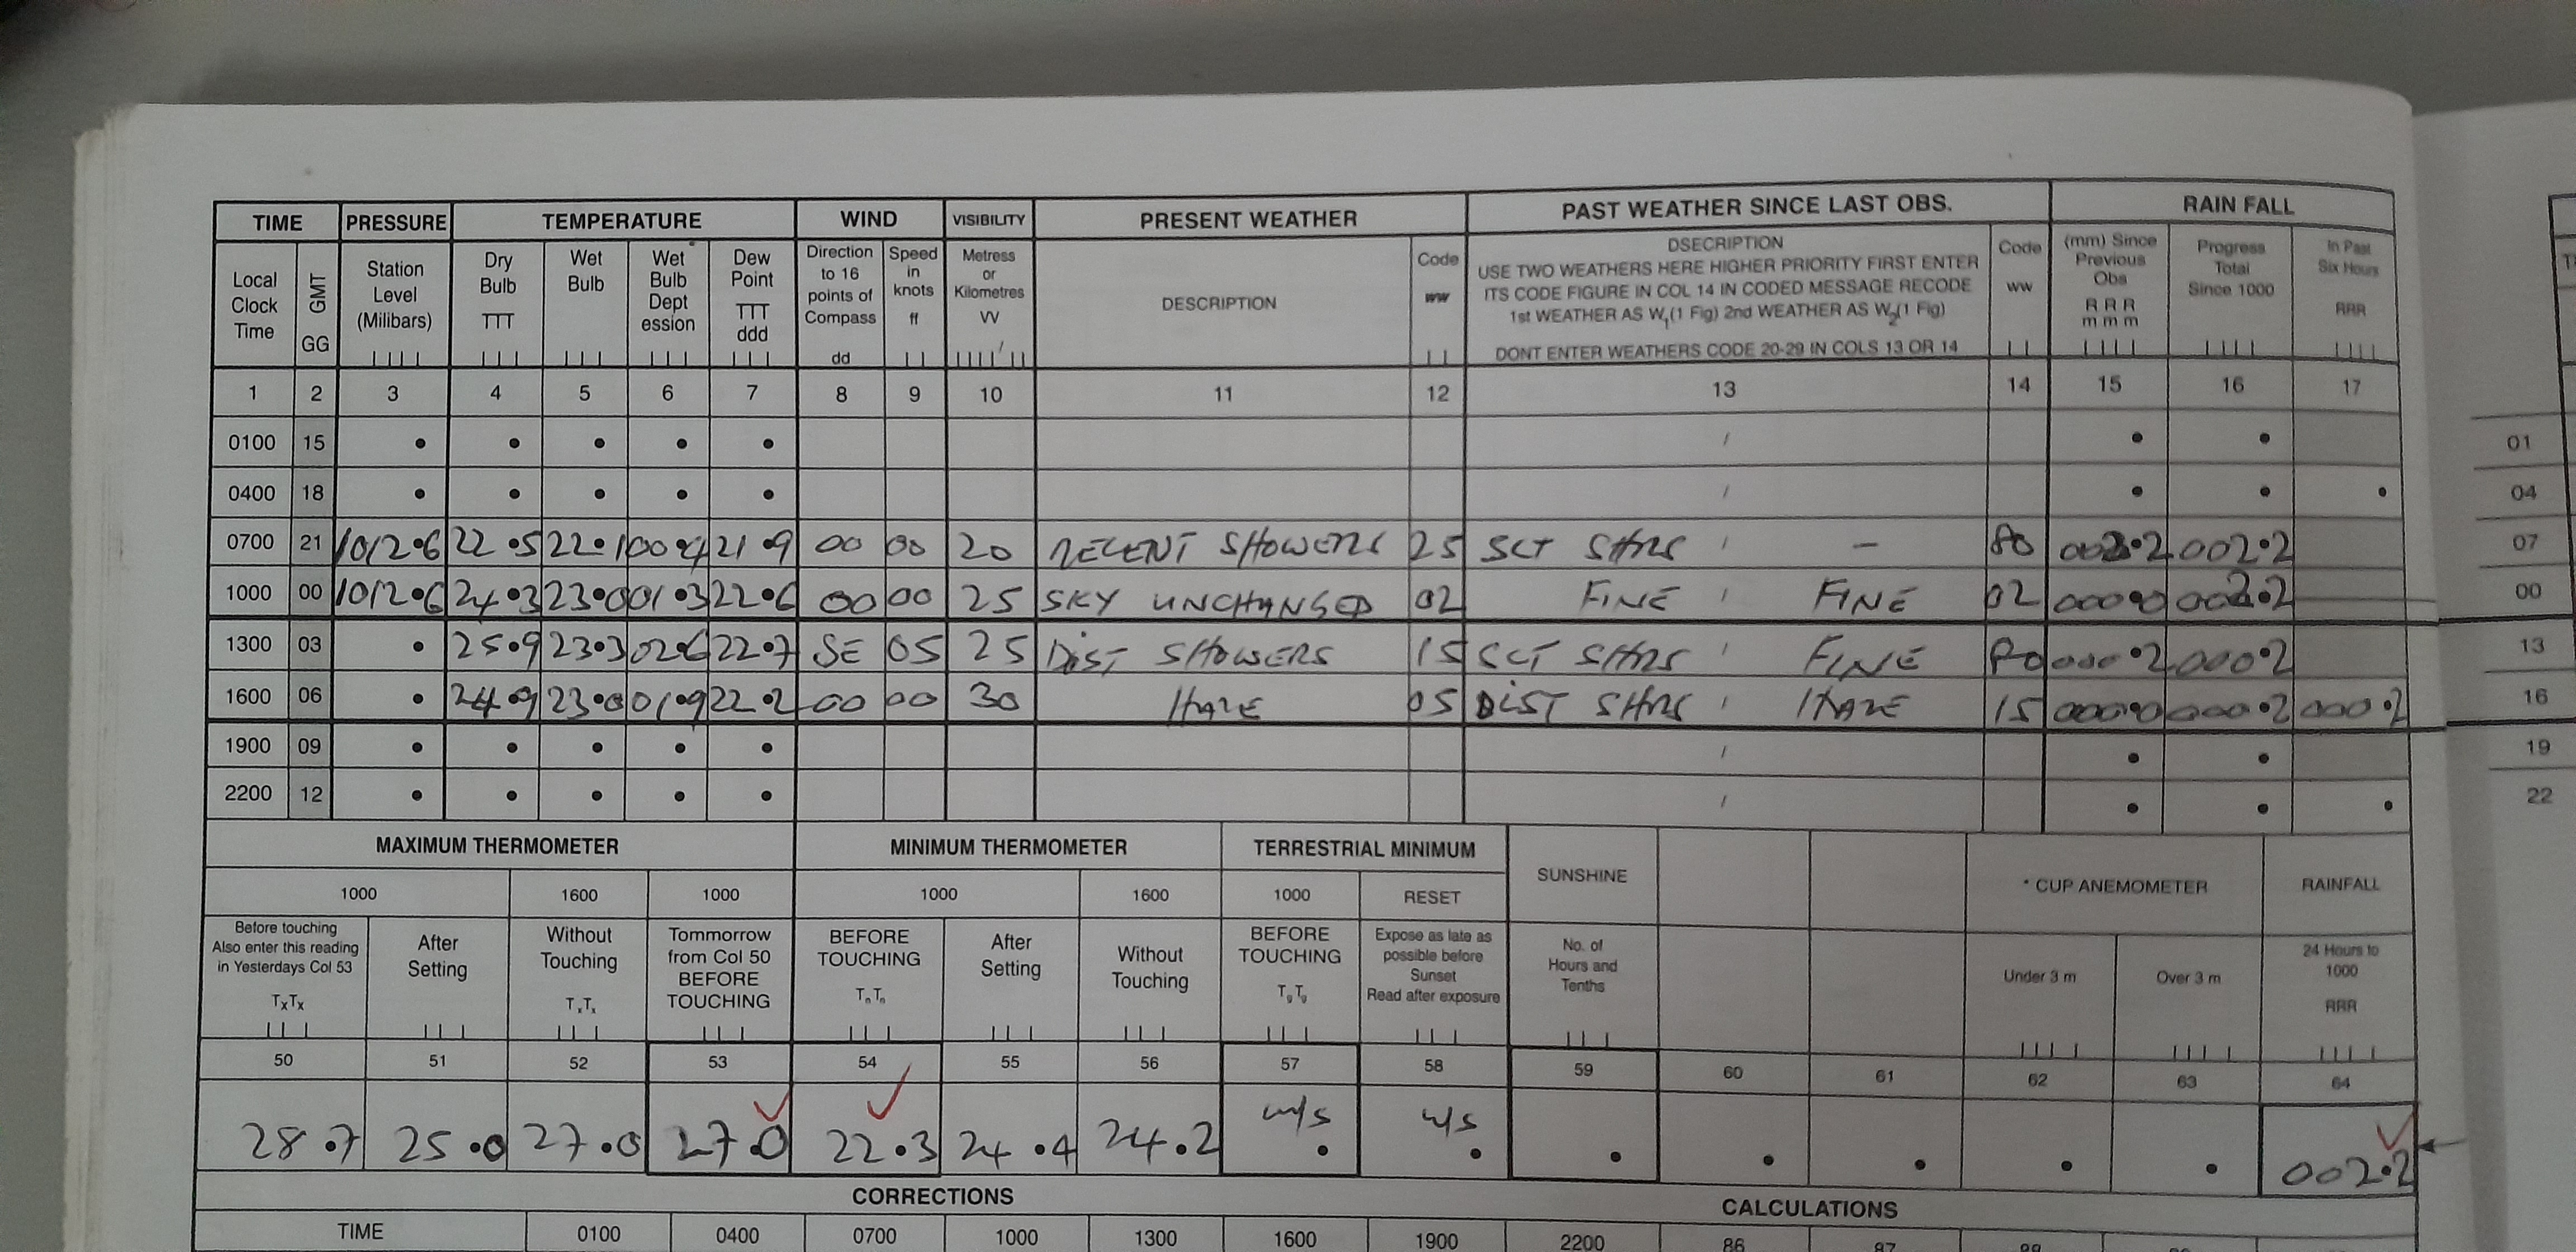 TIME PRESSURE TEMPERATURE WIND VISIBILITY PRESENT WEATHER PAST WEATHER SINCE LAST OBS. RAIN FALL
Local Clock Time
GG
Station Level (Milibars)
Dry Bulb TTT
Wet Bulb
Wet Bulb Dept ession
Dew Point TTT ddd
Direction to 16 points of Compass dd
Speed in knots ff
Metress or Kilometres VV
DESCRIPTION
Code ww
DSECRIPTION
USE TWO WEATHERS HERE HIGHER PRIORITY FIRST ENTER
ITS CODE FIGURE IN COL 14 IN CODED MESSAGE RECODE
1st WEATHER AS W1(1 Fig) 2nd WEATHER AS W2(1 Fig)
DONT ENTER WEATHERS CODE 20-29 IN COLS 13 OR 14
Code ww
(mm) Since Previous Obs R R R m m m
Progress Total Since 1000
In Past Six Hours RRR
1 2 3 4 5 6 7 8 9 10 11 12 13 14 15 16 17
0100 15
0400 18
0700 21 1012.6 22.5 22.1 00.4 21.9 00 00 20 RECENT SHOWERS 25 SCT SHRS , - 80 002.2 002.2
1000 00 1012.6 24.3 23.0 01.3 22.6 00 00 25 SKY UNCHANGED 02 FINE , FINE 02 000.0 002.2
1300 03 25.9 23.3 02.6 22.7 SE 05 25 DIST SHOWERS 15 SCT SHRS , FINE 80 000.2 000.2
1600 06 24.9 23.0 01.9 22.2 00 00 30 HAZE 05 DIST SHRS , HAZE 15 000.0 000.2 000.2
1900 09
2200 12
MAXIMUM THERMOMETER MINIMUM THERMOMETER TERRESTRIAL MINIMUM
1000 1600 1000 1000 1600 1000 RESET SUNSHINE * CUP ANEMOMETER RAINFALL
Before touching Also enter this reading in Yesterdays Col 53 TxTx
After Setting
Without Touching TxTx
Tommorrow from Col 50 BEFORE TOUCHING
BEFORE TOUCHING TnTn
After Setting
Without Touching
BEFORE TOUCHING TgTg
Expose as late as possible before Sunset Read after exposure
No. of Hours and Tenths
Under 3 m
Over 3 m
24 Hours to 1000 RRR
50 51 52 53 54 55 56 57 58 59 60 61 62 63 64
28.7 25.0 27.0 27.0 22.3 24.4 24.2 u/s u/s 002.2
CORRECTIONS CALCULATIONS
TIME 0100 0400 0700 1000 1300 1600 1900 2200 86 87
01
04
07
00
13
16
19
22